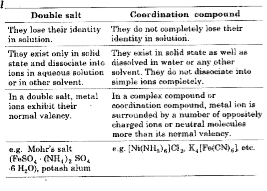 Double salt
Coordination compound
They lose their identity
in solution.
They do not completely lose their
identity in solution.
They exist only in solid
state and dissociate into
ions in aqueous solution
or in other solvent.
They exist in solid state as well as
dissolved in water or any other
solvent. They do not dissociate into
simple ions completely.
In a double salt, metal
ions exhibit their
normal valency.
In a complex compound or
coordination compound, metal ion is
surrounded by a number of oppositely
charged ions or neutral molecules
more than its normal valency.
e.g. Mohr's salt
(FeSO₄ · (NH₄)₂ SO₄
·6 H₂O), potash alum
e.g. [Ni(NH₃)₆]Cl₂, K₄[Fe(CN)₆], etc.